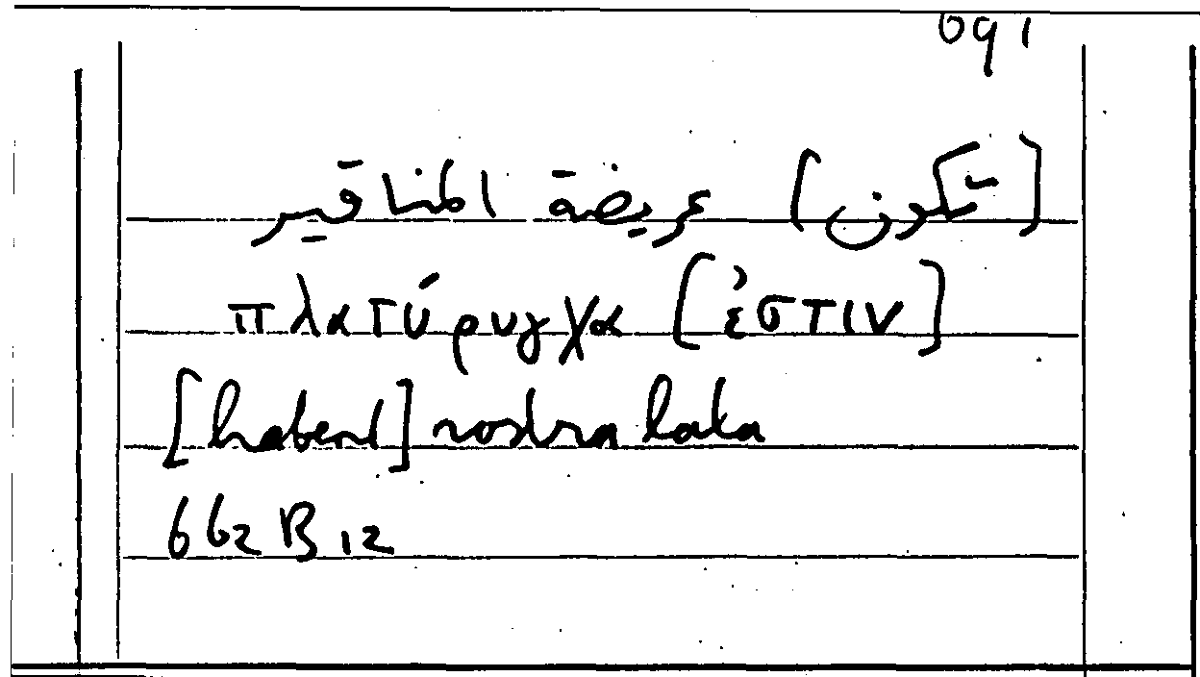 691
[تكون] عريضة المناقير
πλατύρυγχα [ἐστιν]
[habent] rostra lata
662 B 12